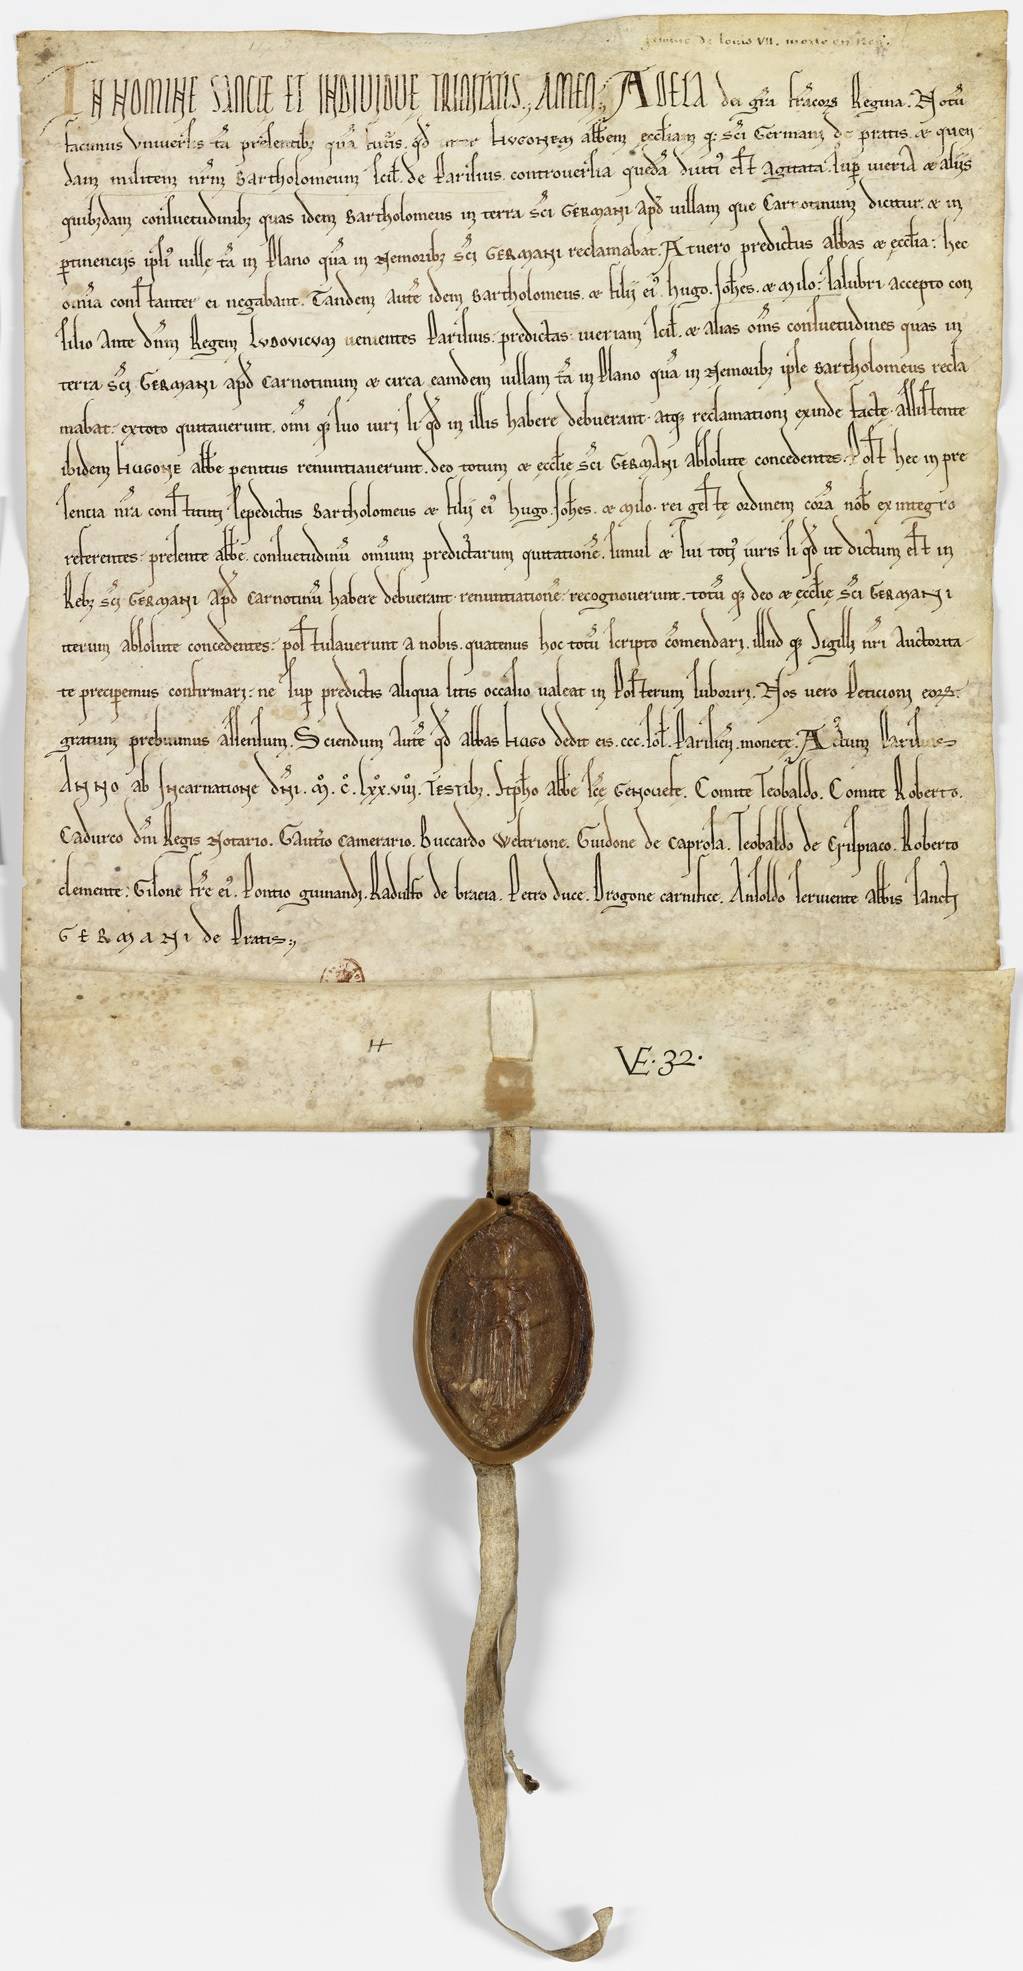 femme de louis VII. morte en 1206.
IN NOMINE SANCTE ET INDIVIDUE TRINITATIS, AMEN; ADELA dei gr̃a francoꝝ Regina. Notũ
facimus Vniuersis tã presentibꝫ quã futuris. qđ inter HUGONEM abbem ęcclesiam qꝫ sc̃i Germani de pratis. & quen
dam militem nr̃m Bartholomeum scil̃. de Parisius. controuersia quedã diutiꝰ est agitata. sup uieriã & aliis
quibꝫdam consuetudinibꝫ quas idem Bartholomeus in terra sc̃i GERMANI apđ uillam que Carnotinum dicitur. & in
ꝑtinenciis ipsiꝰ uillę tã in plano quã in Nemoribꝫ sc̃i GERMANI reclamabat. At uero predictus abbas & ecclia: hec
om̃ia constanter ei negabant. Tandem autẽ idem Bartholomeus. & filij eiꝰ. hugo. Joh̃es. & Milo: salubri accepto con
silio ante dñm Regem LUDOVICUM uenientes Parisius: predictas: uieriam scil̃. & alias om̃s consuetudines quas in
terra sc̃i GERMANI apđ Carnotinum & circa eamdem uillam tã in plano quã in Nemoribꝫ ipse Bartholomeus recla
mabat: ex toto quitauerunt. om̃i qꝫ suo iuri si qđ in illis habere debuerant. atqꝫ reclamationi exinde facte. assistente
ibidem HUGONE abbe penitus renuntiauerunt. deo totum & ecclie sc̃i GERMANI absolute concedentes. Post hec in pre
sencia nr̃a constituti sepedictus Bartholomeus & filij eiꝰ hugo. Joh̃es. & Milo. rei geste ordinem corã nob̃ ex integro
referentes: presente abbe. consuetudinũ omnium predictarum quitationẽ. simul & sui totiꝰ iuris si qđ ut dictum est in
Rebꝫ sc̃i GERMANI apđ Carnotinũ habere debuerant. renuntiationẽ: recognouerunt. totũ qꝫ deo & ęcclię sc̃i GERMANI
iterum absolute concedentes: postulauerunt a nobis. quatenus hoc totũ scripto cõmendari. illud qꝫ sigilli nr̃i auctorita
te preciperemus confirmari: ne sup predictis aliqua litis occasio ualeat in posterum suboriri. Nos uero peticioni eoꝝ:
gratum prebuimus assensum. Sciendum autẽ qđ abbas HUGO dedit eis. ccc. sol̃. Parisieñ. monete. Actum Parisius
ANNO ab Incarnatione dñi. M. C. lxx. viii. TESTIbꝫ. Stph̃o abbe sc̃e GENOVEFE. Comite Teobaldo. Comite Roberto.
Cadurco dñi Regis Notario. Gaut̃io Camerario. Buccardo Veltrione. Guidone de caprosa. Teobaldo de Crispiaco. Roberto
clemente. Gilone fr̃e eiꝰ. Pontio guinandi. Radulfo de bracia. Petro duce. Drogone carnifice. Ansoldo seruiente abbis sancti
GERMANI de Pratis;
H
VE. 32.